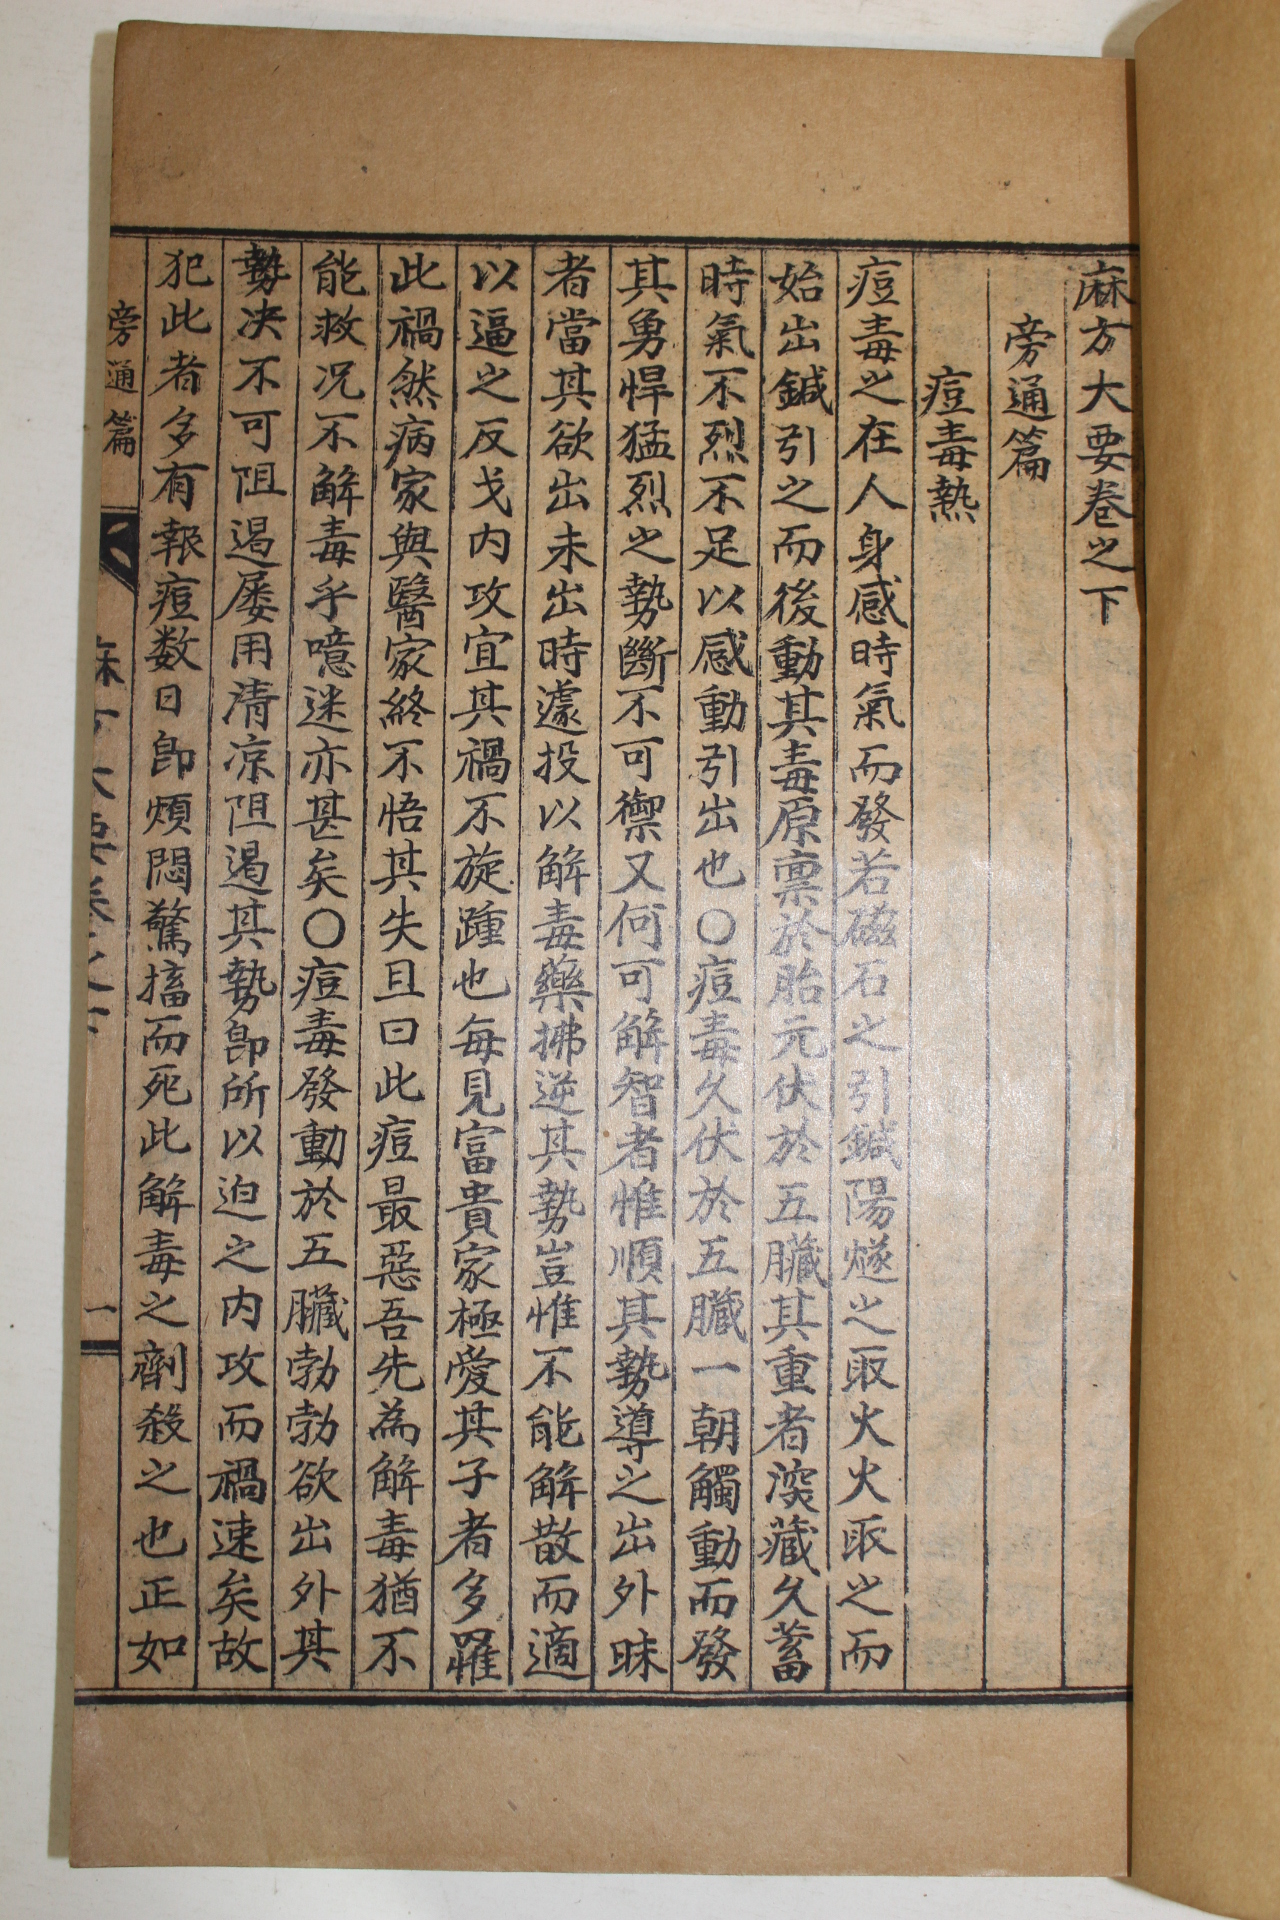 麻方大要卷之下
旁通篇
痘毒熱
痘毒之在人身感時氣而發若磁石之引鍼陽燧之取火火取之而
始出鍼引之而後動其毒原稟於胎元伏於五臟其重者深藏久蓄
時氣不烈不足以感動引出也〇痘毒久伏於五臟一朝觸動而發
其勇悍猛烈之勢斷不可禦又何可解智者惟順其勢導之出外昧
者當其欲出未出時遽投以解毒藥拂逆其勢豈惟不能解散而適
以逼之反戈內攻宜其禍不旋踵也每見富貴家極愛其子者多罹
此禍然病家與醫家終不悟其失且曰此痘最惡吾先為解毒猶不
能救况不解毒乎噫迷亦甚矣〇痘毒發動於五臟勃勃欲出外其
勢决不可阻遏屡用清凉阻遏其勢即所以迫之内攻而禍速矣故
犯此者多有報痘数日即煩悶驚搐而死此解毒之劑殺之也正如
旁通篇
麻方大要卷之下
一